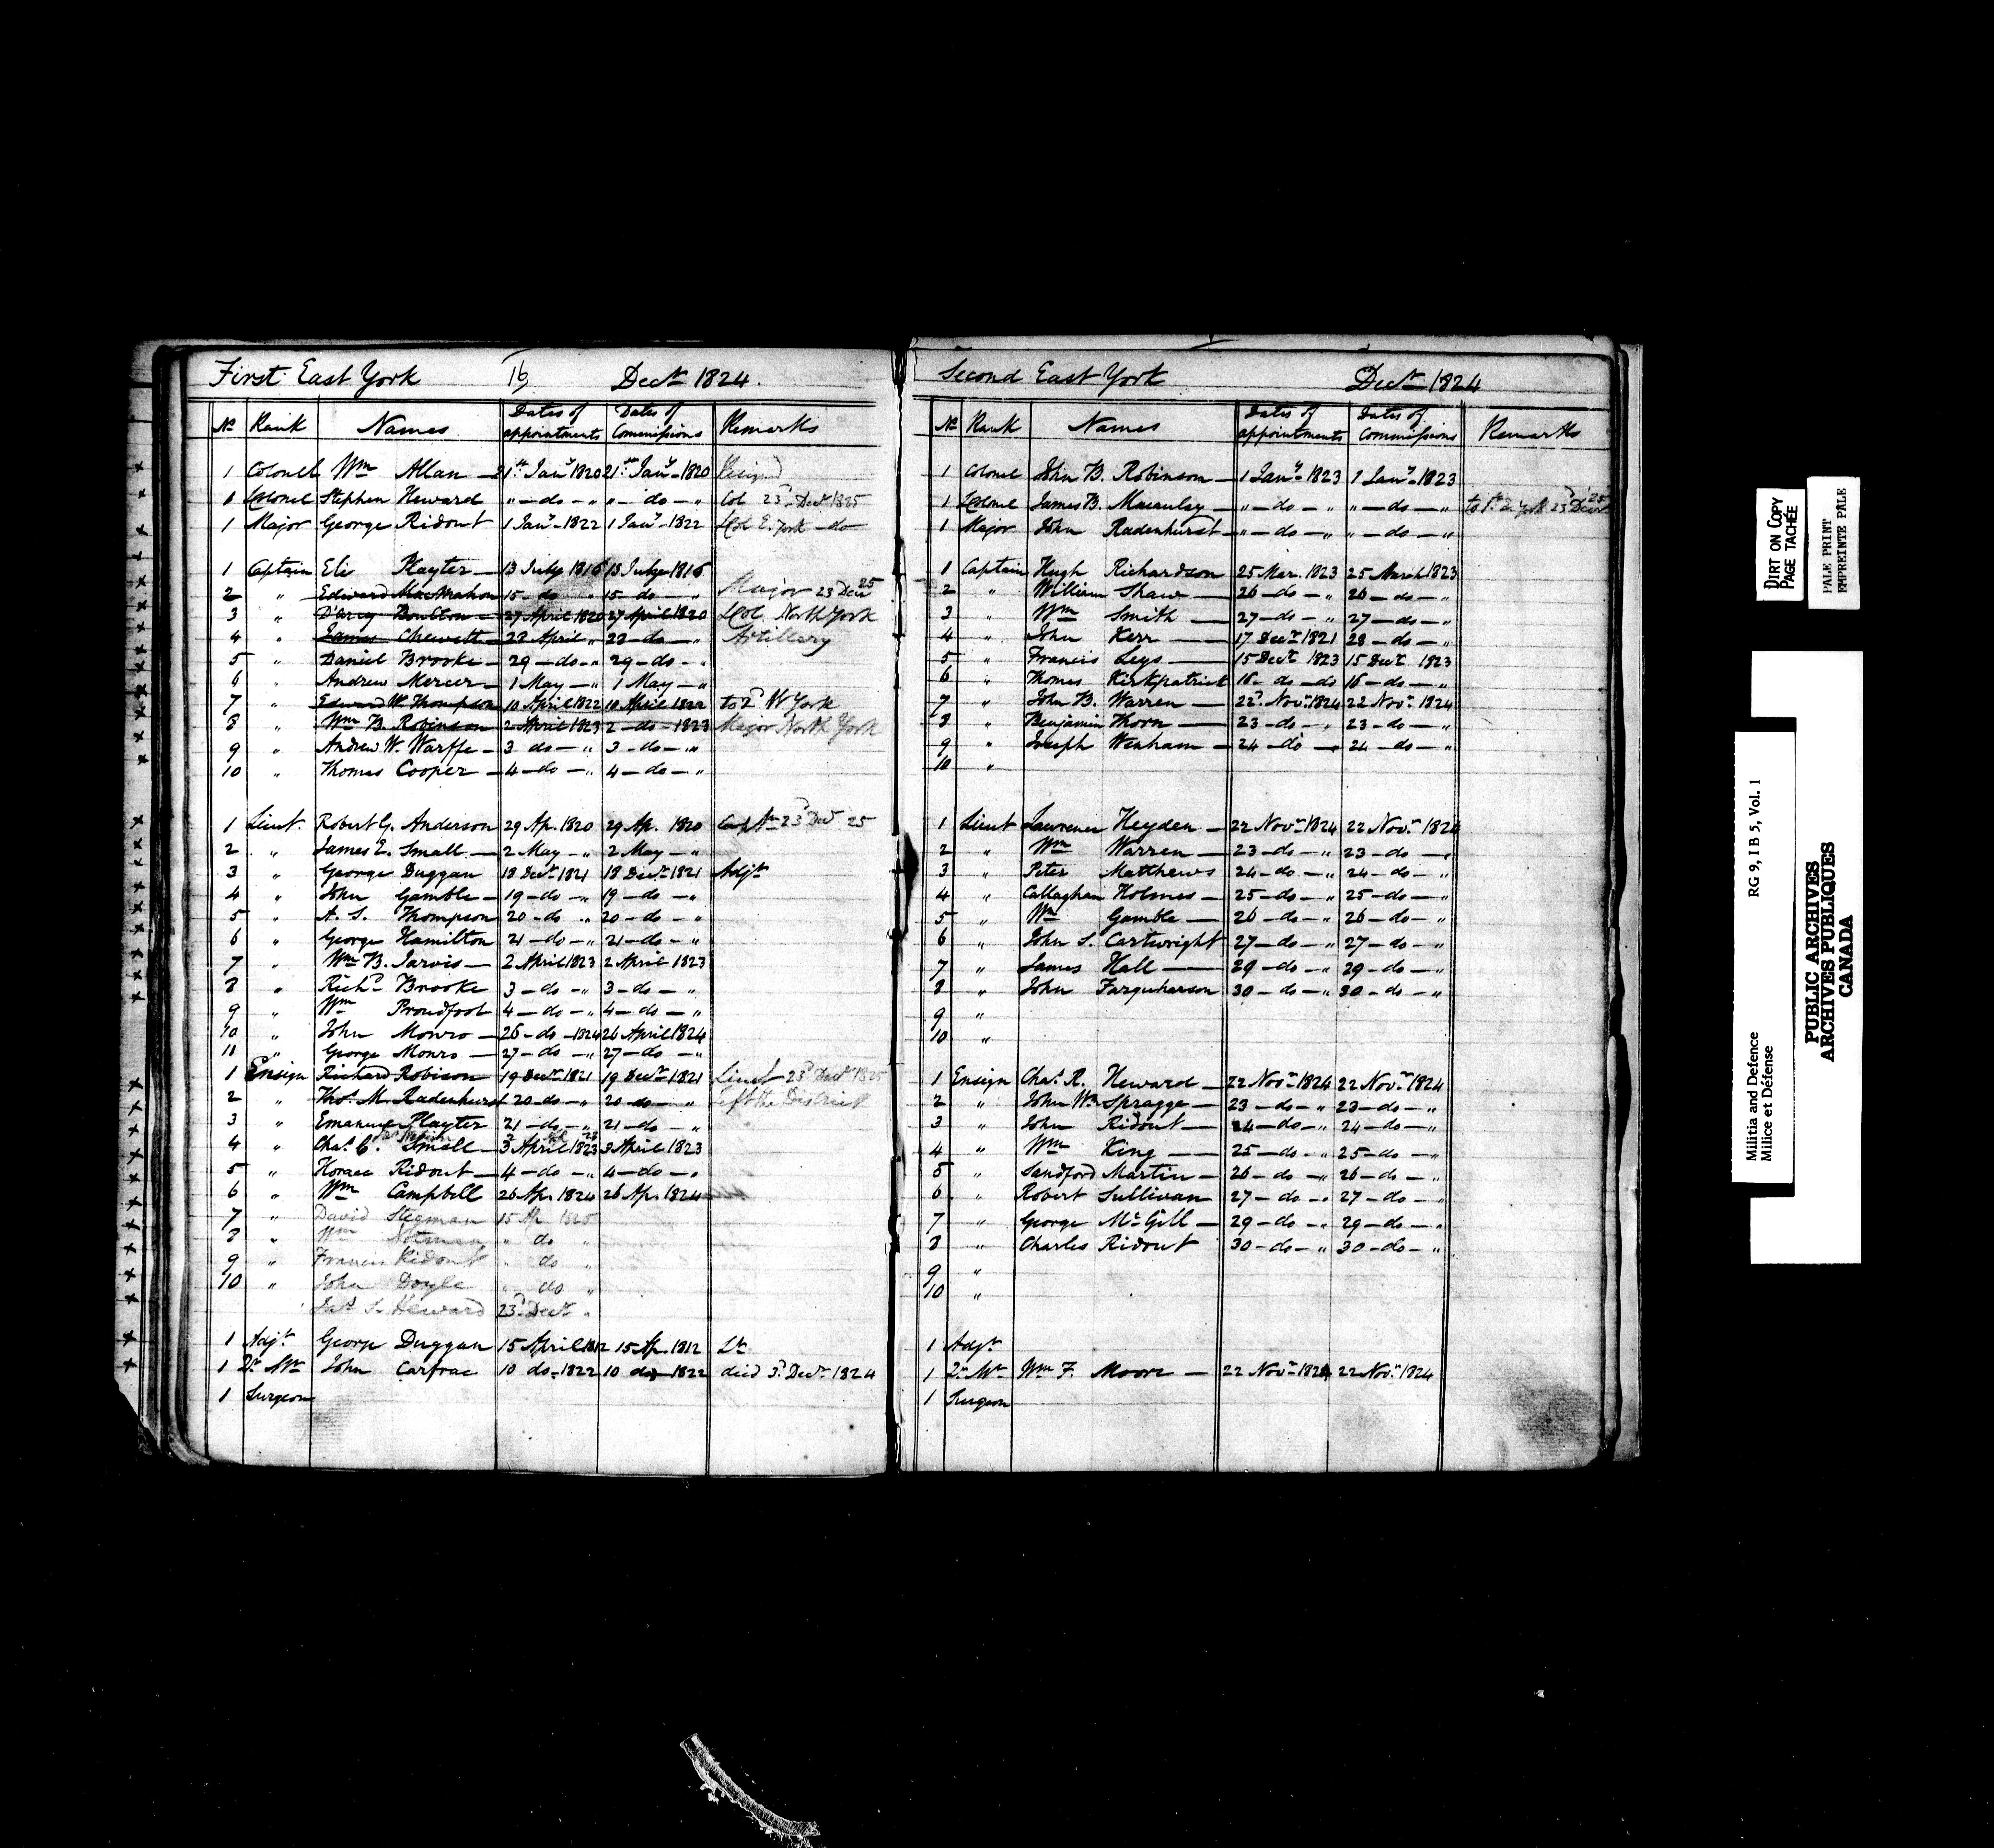 First East York 16 Decr 1824.
No Rank Names Dates of appointments Dates of Commissions Remarks
1 Colonel Wm Allan — 21st Jany 1820 21st Jany 1820 Resigned
1 Lt Colonel Stephen Heward " — do — " " — do — " Col 23d Decr 1825
1 Major George Ridout 1 Jany 1822 1 Jany 1822 Lt Col E. York — do
1 Captain Eli Playter — 13 July 1816 13 July 1816
2 " Edward MacMahon 15 — do 15 — do — " Major 23 Decr 25
3 " D'Arcy Boulton — 27 April 1820 27 April 1820 Lt Col North York
4 " James Chewett — 28 April " 28 — do — " Artillery
5 " Daniel Brooke — 29 — do — " 29 — do — "
6 " Andrew Mercer — 1 May — " 1 May — "
7 " Edward W. Thompson 10 April 1822 10 April 1822 to 2d W York
8 " Wm B. Robinson — 2 April 1823 2 — do — 1823 Major North York
9 " Andrew W. Warffe — 3 do — " 3 — do — "
10 " Thomas Cooper — 4 — do — " 4 — do — "
1 Lieut. Robert G. Anderson 29 Ap. 1820 29 Ap. 1820 Captn 23d Decr 25
2 " James E. Small — 2 May — " 2 May — "
3 " George Duggan 18 Decr 1821 18 Decr 1821 Adjt
4 " John Gamble — 19 — do — " 19 — do — "
5 " A. S. Thompson 20 — do " 20 — do — "
6 " George Hamilton 21 — do — " 21 — do — "
7 " Wm B. Jarvis — 2 April 1823 2 April 1823
8 " Richd Brooke 3 — do — " 3 — do — "
9 " Wm Proudfoot 4 — do — " 4 — do — "
10 " John Monro — 26 — do — 1824 26 April 1824
11 " George Monro — 27 — do — " 27 — do — "
1 Ensign Richard Robison 19 Decr 1821 19 Decr 1821 Lieut 23d Decr 1825
2 " Thos. M. Radenhurst 20 — do — " 20 — do — " Left the District
3 " Emanuel Playter 21 — do — " 21 — do — "
4 " Chas. C. Small — 3 April 1823 3 April 1823
5 " Horace Ridout — 4 — do — " 4 — do — "
6 " Wm Campbell 26 Ap. 1824 26 Ap. 1824
7 " David Stegman 15 Ap 1825
8 " Wm " do "
9 " Francis Ridout " do "
10 " John Doyle " do "
S. Heward 23d Decr "
1 Adjt George Duggan 15 April 1812 15 Ap. 1812 Lt
1 Qr Mr John Carfrae 10 do — 1822 10 do — 1822 died 3d Decr 1824
1 Surgeon
Second East York Decr 1824
No Rank Names Dates of appointments Dates of Commissions Remarks
1 Colonel John B. Robinson — 1 Jany 1823 1 Jany 1823
1 Lt Colonel James B. Macaulay — " — do — " " — do — " to 1st E York 23d Decr 25
1 Major John Radenhurst — " — do — " " — do — "
1 Captain Hugh Richardson 25 Mar. 1823 25 March 1823
2 " William Shaw — 26 — do — " 26 — do — "
3 " Wm Smith — 27 — do — " 27 — do — "
4 " John Kerr — 17 Decr 1821 28 — do — "
5 " Francis Leys — 15 Decr 1823 15 Decr 1823
6 " Thomas Kirkpatrick 16 — do — do 16 — do — "
7 " John B. Warren — 22d Novr 1824 22 Novr 1824
8 " Benjamin Thorn — 23 — do — " 23 — do — "
9 " Joseph Wenham — 24 — do — " 24 — do — "
10 "
1 Lieut Lawrence Heyden — 22 Novr 1824 22 Novr 1824
2 " Wm Warren — 23 — do — " 23 — do — "
3 " Peter Matthews 24 — do — " 24 — do — "
4 " Callaghan Holmes — 25 — do — " 25 — do — "
5 " Wm Gamble — 26 — do — " 26 — do — "
6 " John S. Cartwright 27 — do — " 27 — do — "
7 " James Hall — 29 — do — " 29 — do — "
8 " John Farquharson 30 — do — " 30 — do — "
9 "
10 "
1 Ensign Chas. R. Heward — 22 Novr 1824 22 Novr 1824
2 " John Wm Spragge — 23 — do — " 23 — do — "
3 " John Ridout — 24 — do — " 24 — do — "
4 " Wm King — 25 — do — " 25 — do — "
5 " Sandford Martin — 26 — do — " 26 — do — "
6 " Robert Sullivan 27 — do — " 27 — do — "
7 " George McGill — 29 — do — " 29 — do — "
8 " Charles Ridout 30 — do — " 30 — do — "
9 "
10 "
1 Adjt
1 Qr Mr Wm F. Moore — 22 Novr 1824 22 Novr 1824
1 Surgeon
DIRT ON COPY
PAGE TACHÉE
PALE PRINT
EMPREINTE PALE
Militia and Defence RG 9, I B 5, Vol. 1
Milice et Défense
PUBLIC ARCHIVES
ARCHIVES PUBLIQUES
CANADA